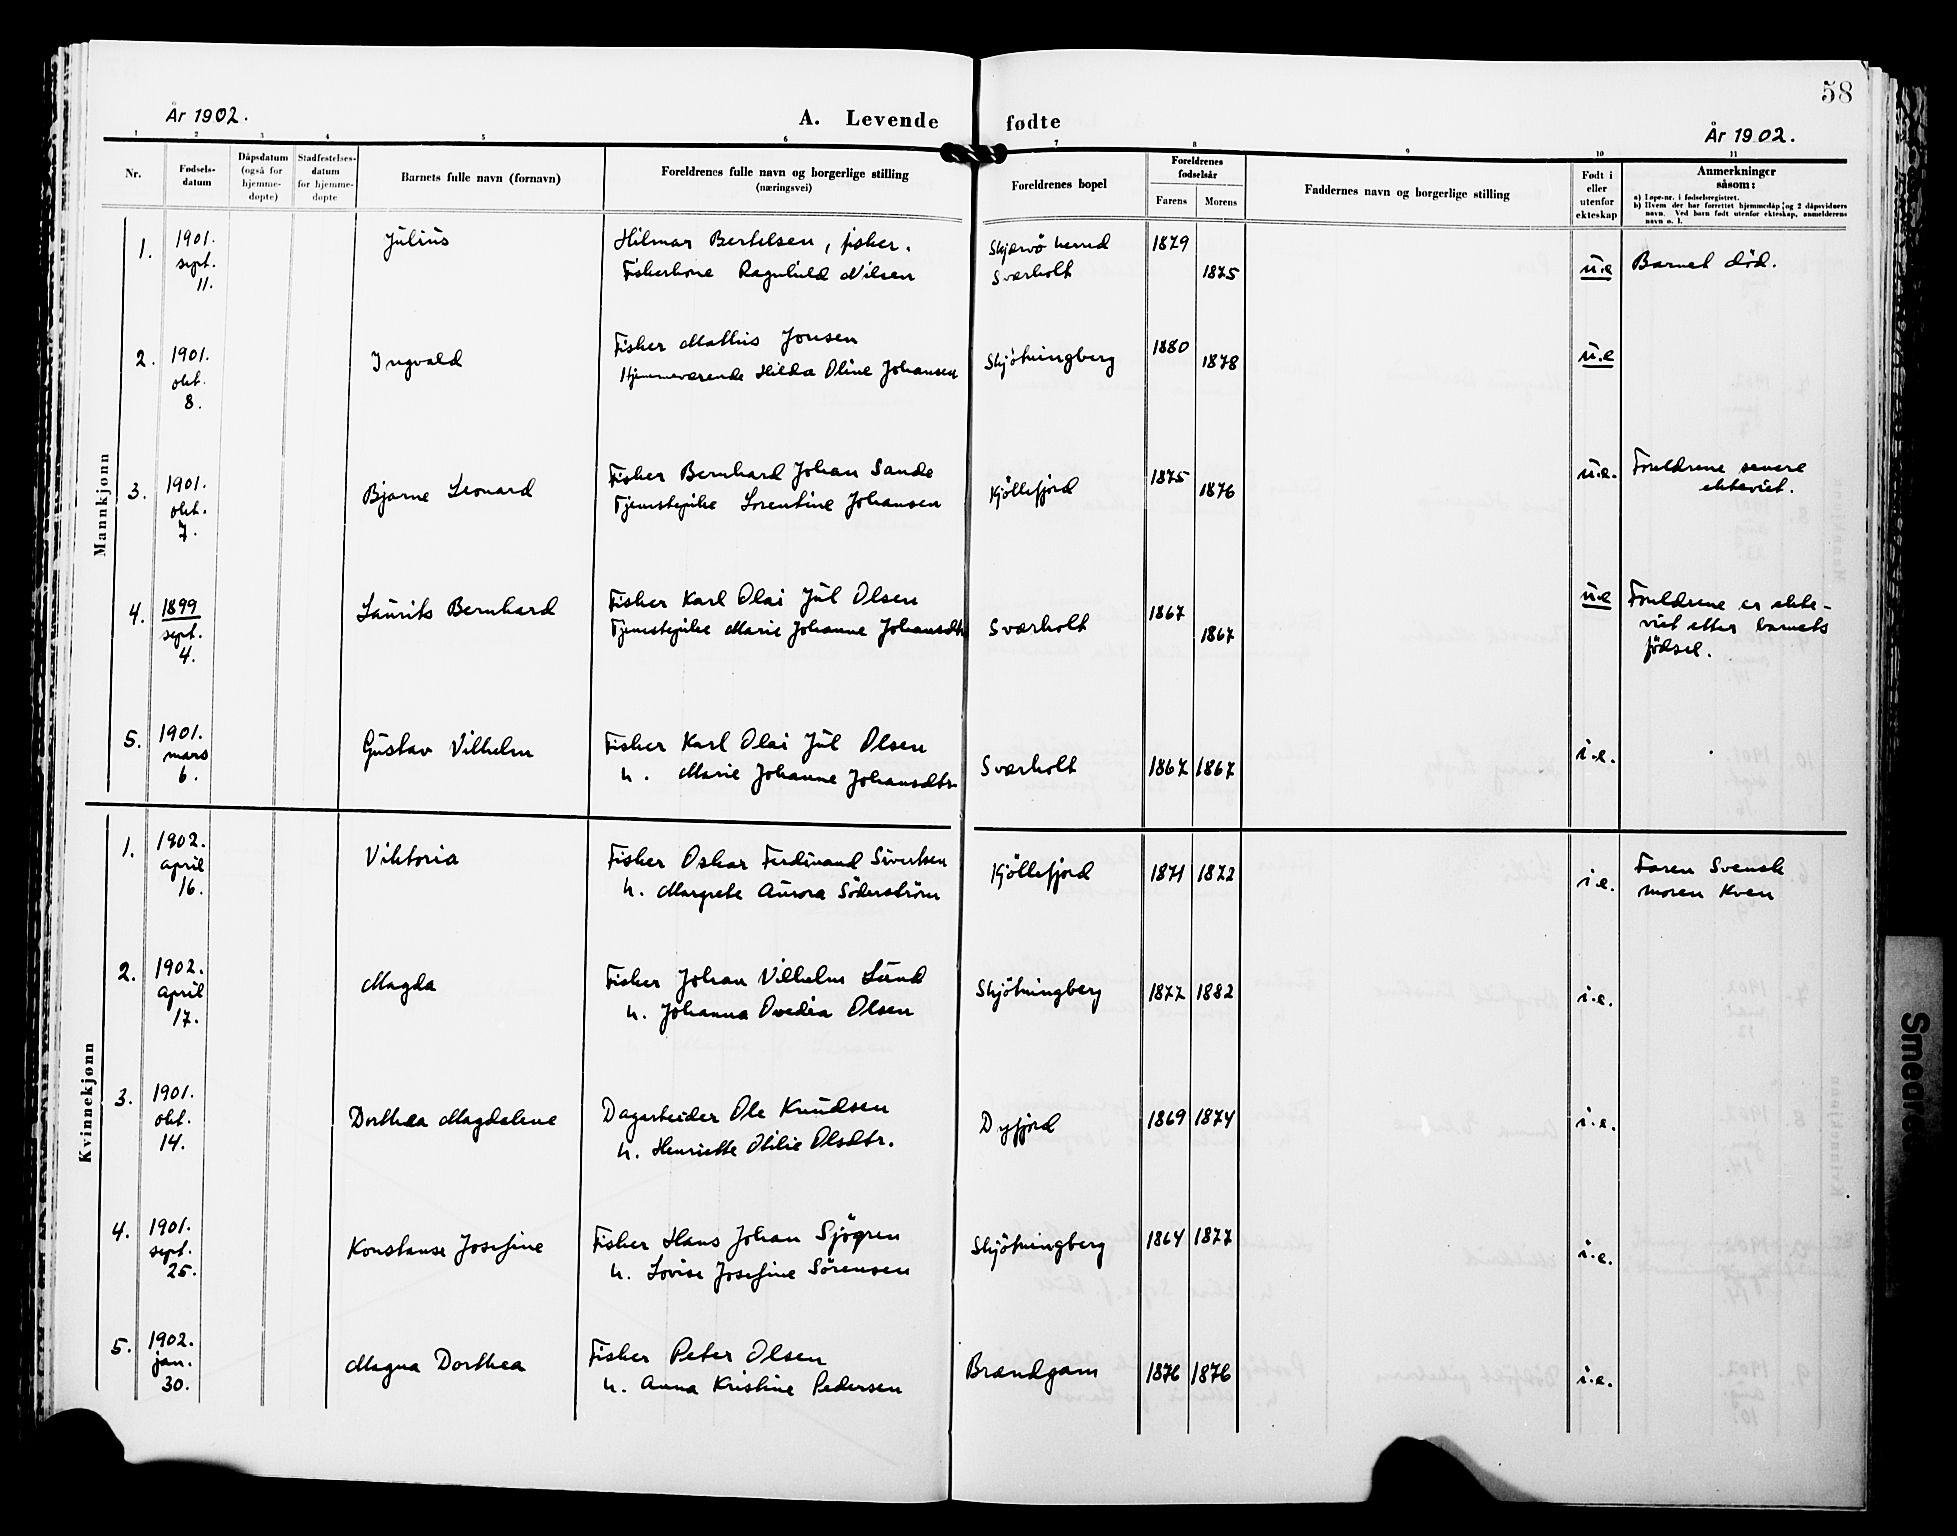 58
År 1902.
A. Levende fødte
År 1902.
1 2 3 4 5 6 7 8 9 10 11
Nr.
Fødsels-
datum
Dåpsdatum
(også for
hjemme-
døpte)
Stadfestelses-
datum
for hjemme-
døpte
Barnets fulle navn (fornavn)
Foreldrenes fulle navn og borgerlige stilling
(næringsvei)
Foreldrenes bopel
Foreldrenes
fødselsår
Farens
Morens
Faddernes navn og borgerlige stilling
Født i
eller
utenfor
ekteskap
Anmerkninger
såsom:
a) Løpe-nr. i fødselsregistret.
b) Hvem der har forrettet hjemmedåp og 2 dåpsvidners
navn. Ved barn født utenfor ekteskap, anmelderens
navn o. l.
Mannkjønn
1. 1901. sept. 11.
Julius
Hilmar Bertelsen, fisker.
Fiskerkone Ragnhild Nilsen
Skjærvö herred
Sværholt
1879
1875
u.e
Barnet död.
2. 1901. okt. 8.
Ingvald
Fisker Mathis Jonsen
Hjemmeværende Hilda Oline Johansen
Skjötningberg
1880
1878
u.e
3. 1901. okt. 7.
Bjarne Leonard
Fisker Bernhard Johan Sande
Tjenestepike Lorentine Johansen
Kjöllefjord
1875
1876
u.e.
Foreldrene senere
ekteviet.
4. 1899 sept. 4.
Laurits Bernhard
Fisker Karl Olai Jul Olsen
Tjenestepike Marie Johanne Johansdtr
Sværholt
1867
1867
u.e
Foreldrene er ekte-
viet etter barnets
födsel.
5. 1901. mars 6.
Gustav Vilhelm
Fisker Karl Olai Jul Olsen
h. Marie Johanne Johansdtr.
Sværholt
1867 1867
i.e.
Kvinnekjønn
1. 1902. april 16.
Viktoria
Fisker Oskar Ferdinand Sivertsen
h. Margrete Aurora Söderström
Kjöllefjord
1871 1872
i.e.
Faren Svensk
moren Kven
2. 1902. april 17.
Magda
Fisker Johan Vilhelm Lund
h. Johanna Ovedia Olsen
Skjötningberg
1877 1882
i.e.
3. 1901. okt. 14.
Dorthea Magdalene
Dagarbeider Ole Knudsen
h. Henriette Otilie Olsdtr.
Dyfjord
1869 1874
i.e.
4. 1901. sept. 25.
Konstanse Josefine
Fisker Hans Johan Sjögren
h. Lovise Josefine Sörensen
Skjötningberg
1864 1877
i.e.
5. 1902. jan. 30.
Magna Dorthea
Fisker Peter Olsen
h. Anna Kristine Pedersen
Brændgam
1876 1876
i.e.